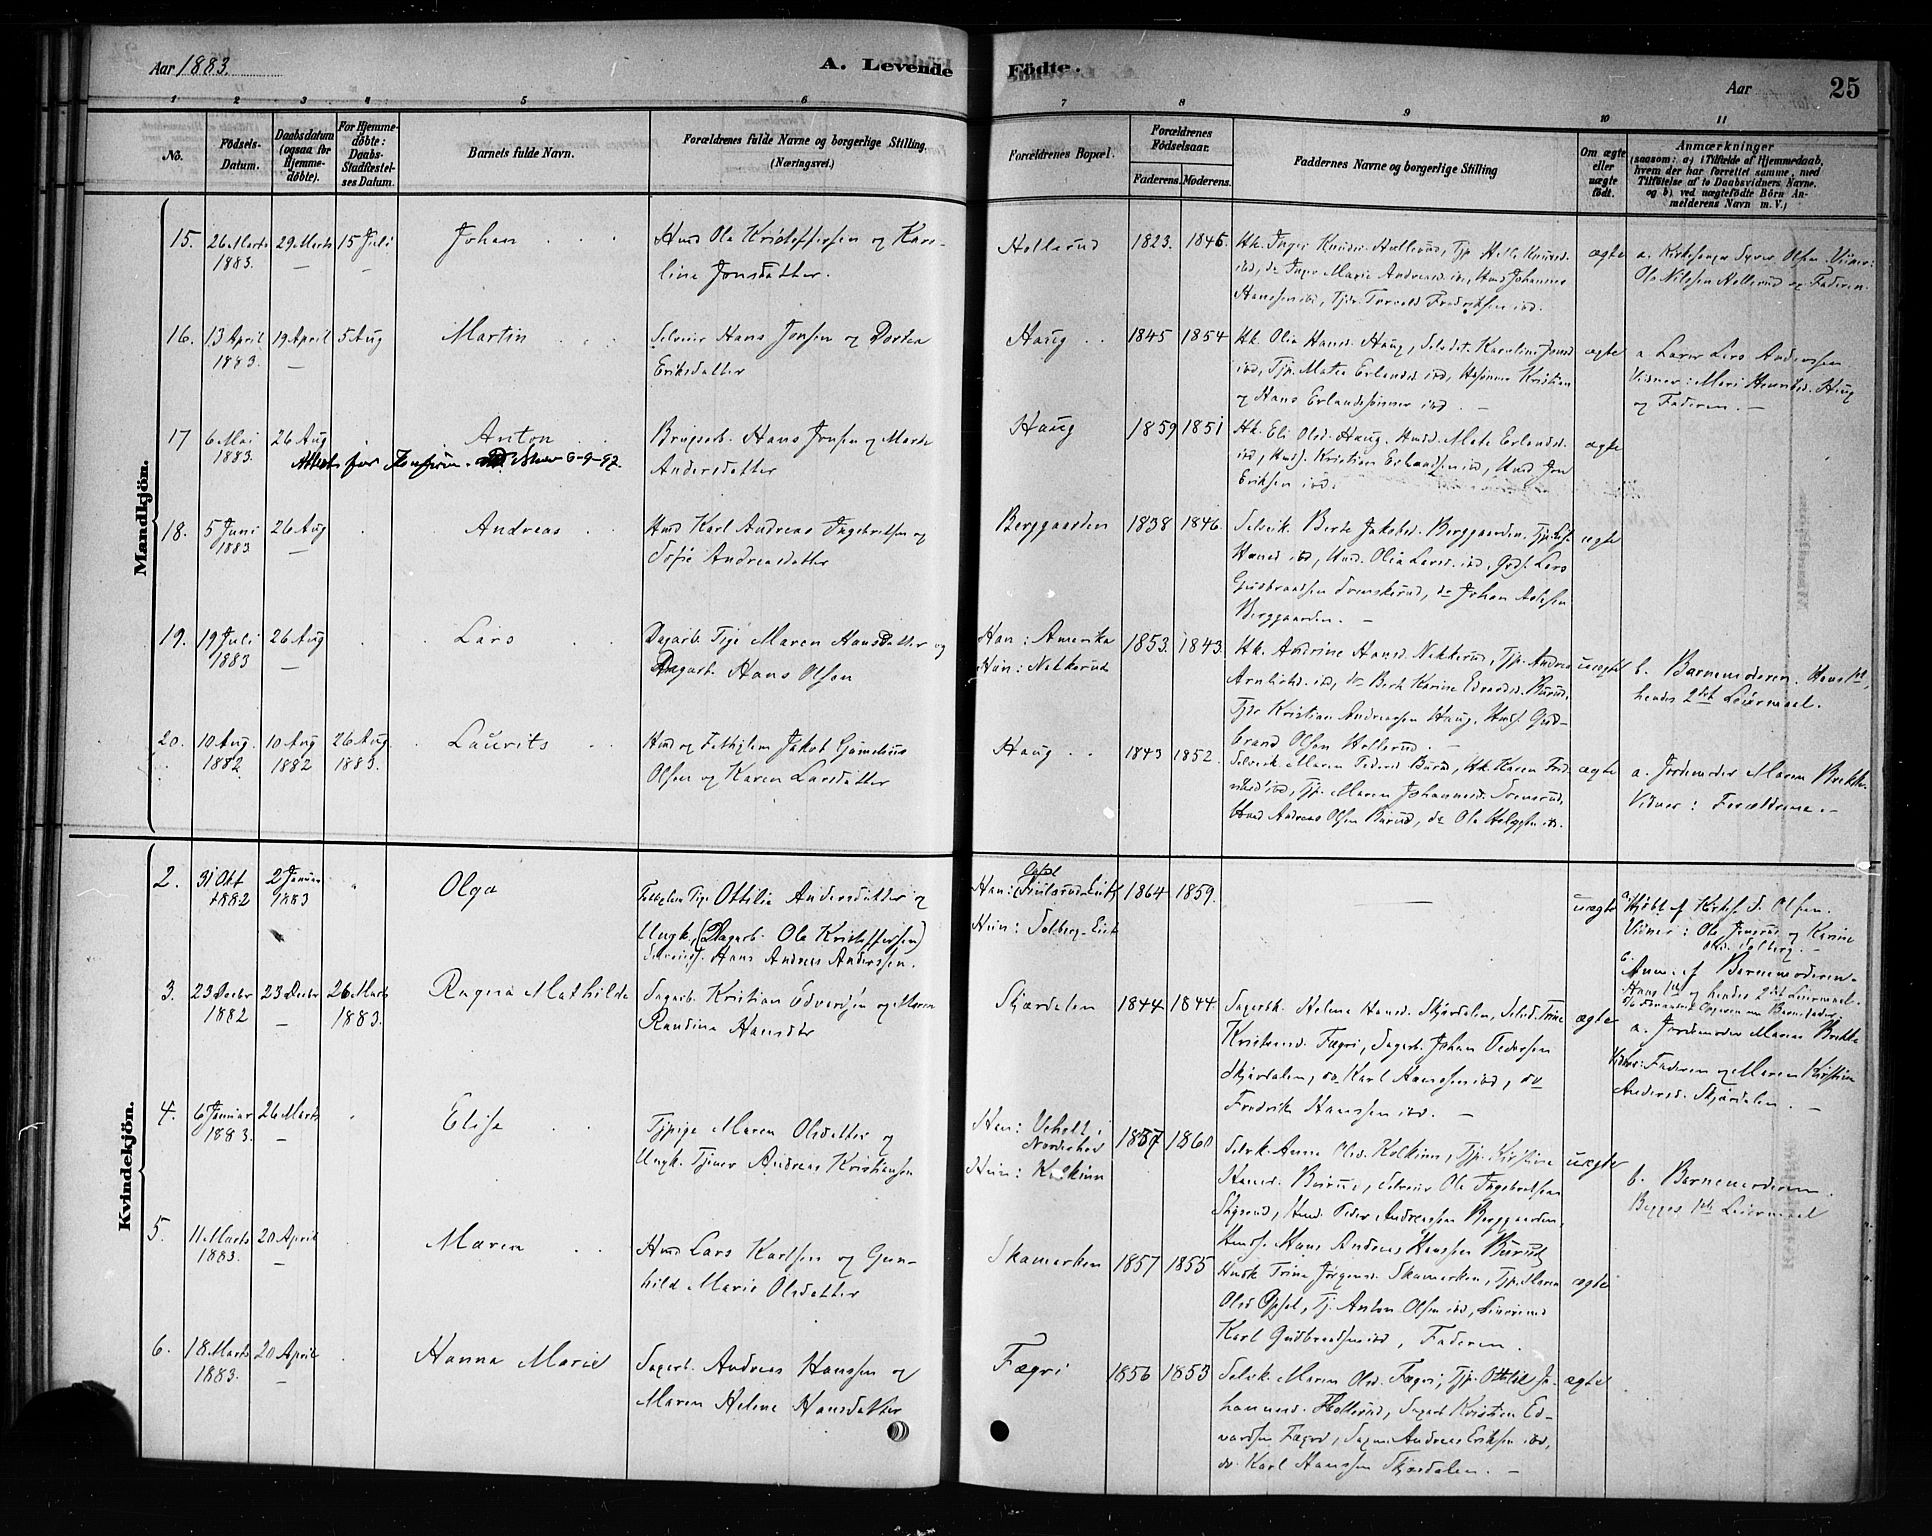 Aar 1883.
A. Levende Fødte.
Aar
25
1 2 3 4 5 6 7 8 9 10 11
No.
Fødsels-Datum.
Daabsdatum (ogsaa for Hjemmedøbte).
For Hjemmedøbte: Daabs-Stadfæstelses Datum.
Barnets fulde Navn.
Forældrenes fulde Navne og borgerlige Stilling. (Næringsvei.)
Forældrenes Bopæl.
Forældrenes Fødselsaar.
Faderens. Moderens.
Faddernes Navne og borgerlige Stilling
Om ægte eller uægte født.
Anmærkninger
(saasom: a) i Tilfælde af Hjemmedaab, hvem der har forrettet samme, med Tilføielse af to Daabsvidners Navne, og b) ved uægtefødte Børn Anmelderens Navn m. V.)
Mandkjön.
15. 26 Marts 1883. 29 Marts — 15 Juli — Johan
Hmd Ola Kristoffersen og Karoline Jonsdatter.
Hollerud 1823. 1846.
Hk. Inger Knudsd. Hollerud, Tjp. Helle Knudsd. ibd, do Inger Marie Andreasd. ibd, Hmd Johannes Hanssen ibd, Tjdr. Torvald Fredriksen ibd.
ægte
a. Kirkesanger Syver Olsen. Vidner: Ole Nilssen Hollerud og Faderen.
16. 13 April 1883. 19 April — 5 Aug Martin
Selveier Hans Jonsen og Dortea Eriksdatter
Haug 1845 1854
Hk. Olia Hansd. Haug, Karoline Jonsd ibd, Tjp. Matea Erlandsd ibd, Kristian og Hans Erlandssønner ibd. —
ægte
a. Lærer Lars Anderssen. Vidner: Mari Haug og Faderen. —
17 6 Mai 1883. 26 Aug Anton
Hans Jonsen og Marte Andersdatter
Attest for Konfirm. 6-9-97.
Haug 1859 1851
Hk. Eli Olsd. Haug. Mate Erlandsd. ibd, Kristian Erlandsen ibd, Hmd Jon Eriksen ibd.
ægte
18. 5 Juni 1883 26 Aug — Andreas
Hmd Karl Andreas Ingebretsen og Sofie Andreasdatter
Berggaarden 1838 1846.
Selvk. Berte Jakobsd. Berggaarden, Tjp. Hansd ibd, Hmd. Olia Larsd. ibd, Gdsf. Lars Gudbrandsen, do Johan Berggaarden. —
ægte
19. 19 Juli 1883 26 Aug — Lars
Dagarb. Pige Maren Hansdatter og Dagarb. Hans Olsen
Han: Amerika
Hun: Nekkerud
1853. 1843.
Hk. Andrine Hansd. Nekkerud, Tjp. Andrea ibd, do Berte Karine Edvardsd. Burud, Tjdr Kristian Andreassen Haug, Gudbrand Olsen Hollerud. —
uægte
b. Barnemoderen. Hans 1ste, hendes 2det Leiermaal.
20. 10 Aug. 1882 10 Aug 1882 26 Aug. 1883. Laurits
Hmd og Jakob Olsen og Karen Larsdatter
Haug 1843 1852.
Maren Pedersd Burud, Hk. Karen ibd, Tjp. Maren Johannesd., Hmd Andreas Olsen Burud, do Ole ibd.
ægte
a. Jordemoder Maren Brekke. Vidner: Forældrene. —
Kvindekjön.
2. 31 Okt 1882 2 Januar 1883 Olga
Pige Ottilie Andersdatter og Ungk. (Dagarb. Ole Kristoffersen) Hans Andreas Anderssen.
Han:
Hun: Solberg-Eiet
1864 1859.
—
uægte
Hjdøbt af Kirkes. S. Olsen. Vidner: Ole og Karine Olsd. Solberg. —
b. Anm. af Barnemoderen. Hans 1ste og hendes 2det Leiermaal.
3. 23 Decbr 1882 23 Decbr — 26 Marts 1883. Ragna Mathilde
Sagarb. Kristian Edvardsen og Maren Randine Hansdtr
Skjærdalen 1844 1844
Sagarbk. Helene Hansd. Skjærdalen, Trine Kristensd. Fægri, Sagarb. Johan Pedersen Skjærdalen, do Karl Hanssen ibd, do Fredrik Hanssen ibd. —
ægte
a. Jordemoder Maren Brekke Vidner: Faderen og Maren Kirstine Andersd. Skjærdalen. —
4. 6 Januar 1883. 26 Marts — Elise
Tjpige Maren Olsdatter og Ungk. Tjener Andreas Kristiansen
Han: Veholt i Norderhov
Hun: Kolkinn
1837 1860
Selvk. Anne Olsd. Kolkinn, Tjp. Kirstine Hansd. Burud, Selveier Ole Ingebretsen, Hmd. Peder Andreassen Berggaarden, Hans Andreas Hanssen Burud
uægte
b. Barnemoderen. Begges 1ste Leiermaal
5. 11 Marts 1883. 20 April — Maren
Hmd Lars Karlsen og Gunhild Marie Olsdatter
Skamarken 1857 1855
Hmdk Trine Jörgensd. Skamarken, Tjp. Maren Olsd Opsal, Tj. Anton Olsen ibd, Karl Gudbrandsen ibd, Faderen.
ægte
6. 18 Marts 1883. 20 April — Hanna Marie
Sagarb. Andreas Hanssen og Maren Helene Hansdatter
Fægri 1856 1853
Selvk. Maren Olsd. Fægri, Tjp. Ottilie Johannesd. Hollerud, Sagarb Kristian Edvardsen Fægri, Andreas Eriksen ibd, do. Karl Hanssen Skjærdalen. —
ægte